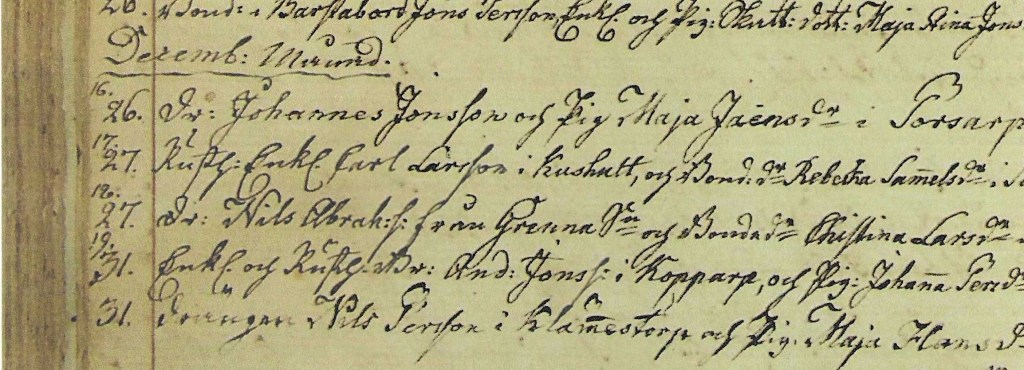 26. Bond: i Barstabord Jons Person Enkl. och Pig: Skutt: dott: Maja Stina Jons
Decemb: Månad.
16.
26. Dr: Johannes Jonsson och Pig Maja Jaensdr i Torsarp
17.
27. Rusth: Enkl. Carl Larsson i Kushult, och Bond: dr Rebecka Samelsdr i
18.
27. Dr: Nils Abrah:s: från Grenna Sn och Bondedr Christina Larsdr
19.
31. Enkl. och Rusth: Br: And: Jonss: i Kopparp, och Pig: Johana Persd
31. Drängen Nils Person i Klamestorp och Pig: Maja Hansd